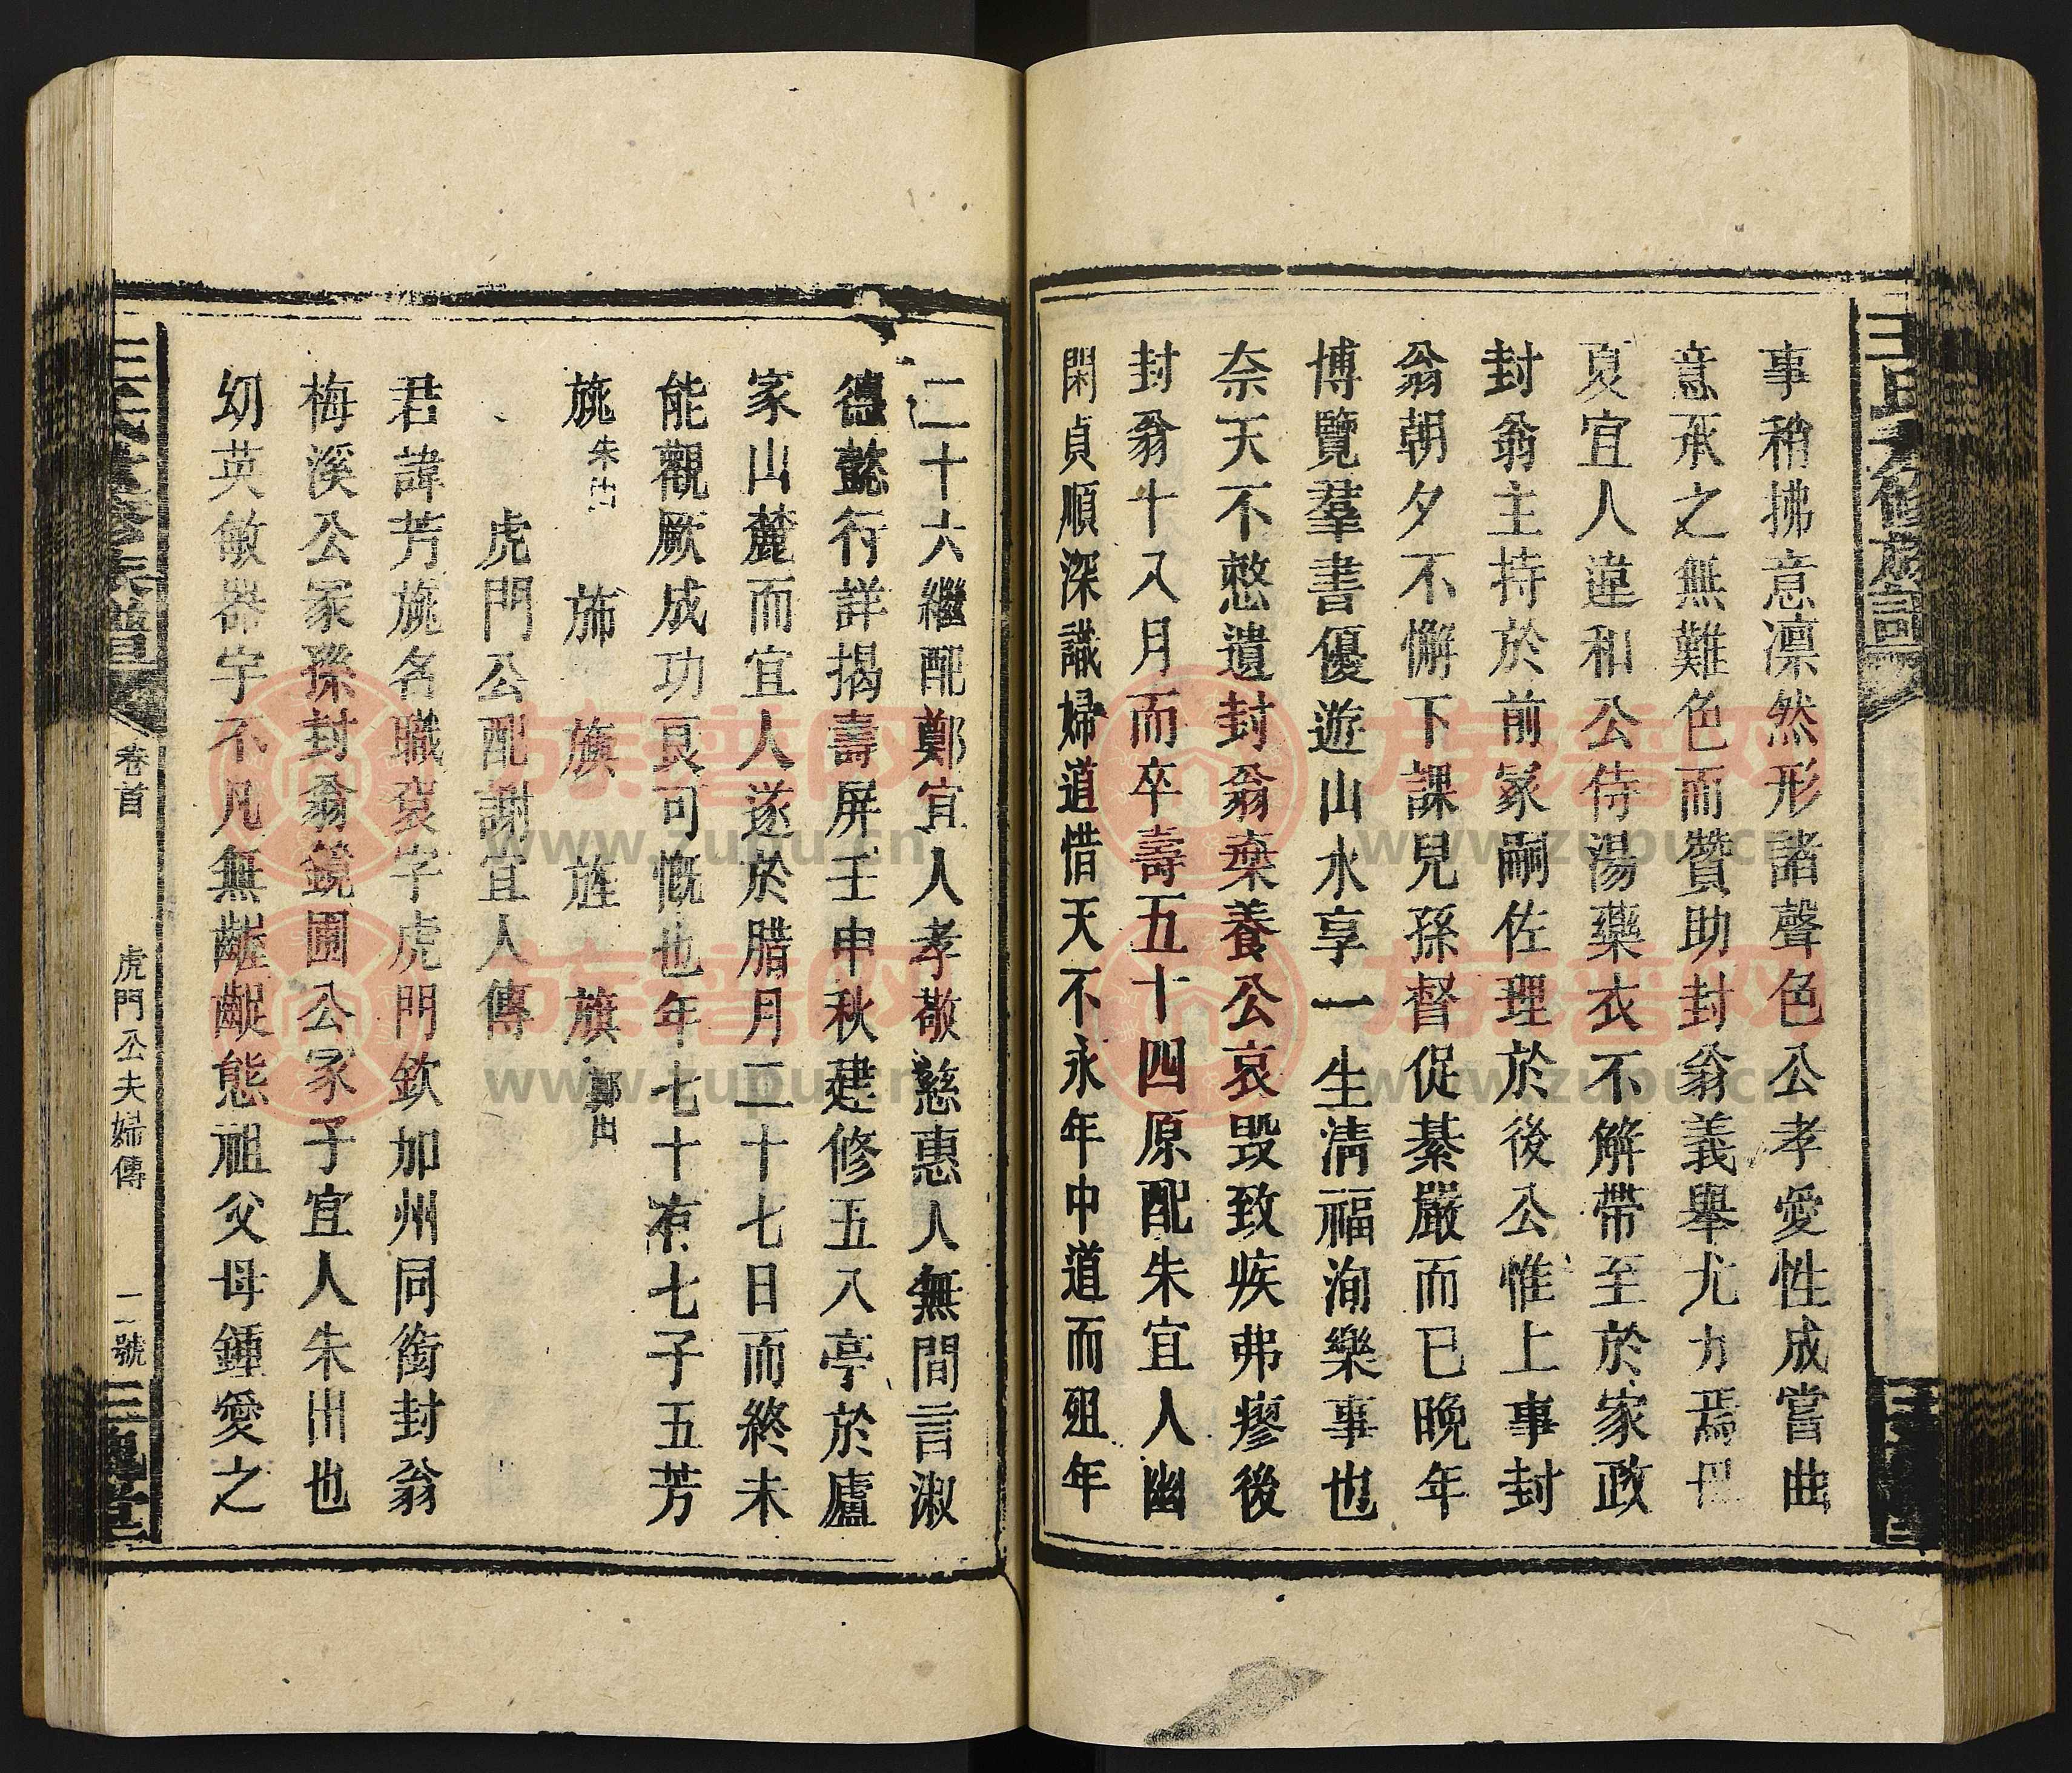 事稍拂意凛然形諸聲色公孝愛性成嘗曲
意承之無難色而贊助封翁義舉尤力焉
夏宜人違和公侍湯藥衣不解帶至於家政
封翁主持於前冢嗣佐理於後公惟上事封
翁朝夕不懈下課兒孫督促綦嚴而已晚年
博覽羣書優遊山水享一生清福洵樂事也
奈天不憖遺封翁棄養公哀毀致疾弗瘳後
封翁十八月而卒壽五十四原配朱宜人幽
閑貞順深識婦道惜天不永年中道而殂年
二十六繼配鄭宜人孝敬慈惠人無間言淑
德懿行詳揭壽屏壬申秋建修五八亭於廬
冢山麓而宜人遂於腊月二十七日而終未
能觀厥成功良可慨也年七十有七子五芳
旐朱出 旆 旟 旌 旗鄭出
虎門公配謝宜人傳
君諱芳旐名職袞字虎門欽加州同銜封翁
梅溪公冢孫封翁鏡圃公冢子宜人朱出也
幼英敏器宇不凡無齷齪態祖父母鍾愛之
卷首
虎門公夫婦傳
二號
三槐堂
族譜网
www.zupu.cn
族譜网
www.zupu.cn
族譜网
www.zupu.cn
族譜网
www.zupu.cn